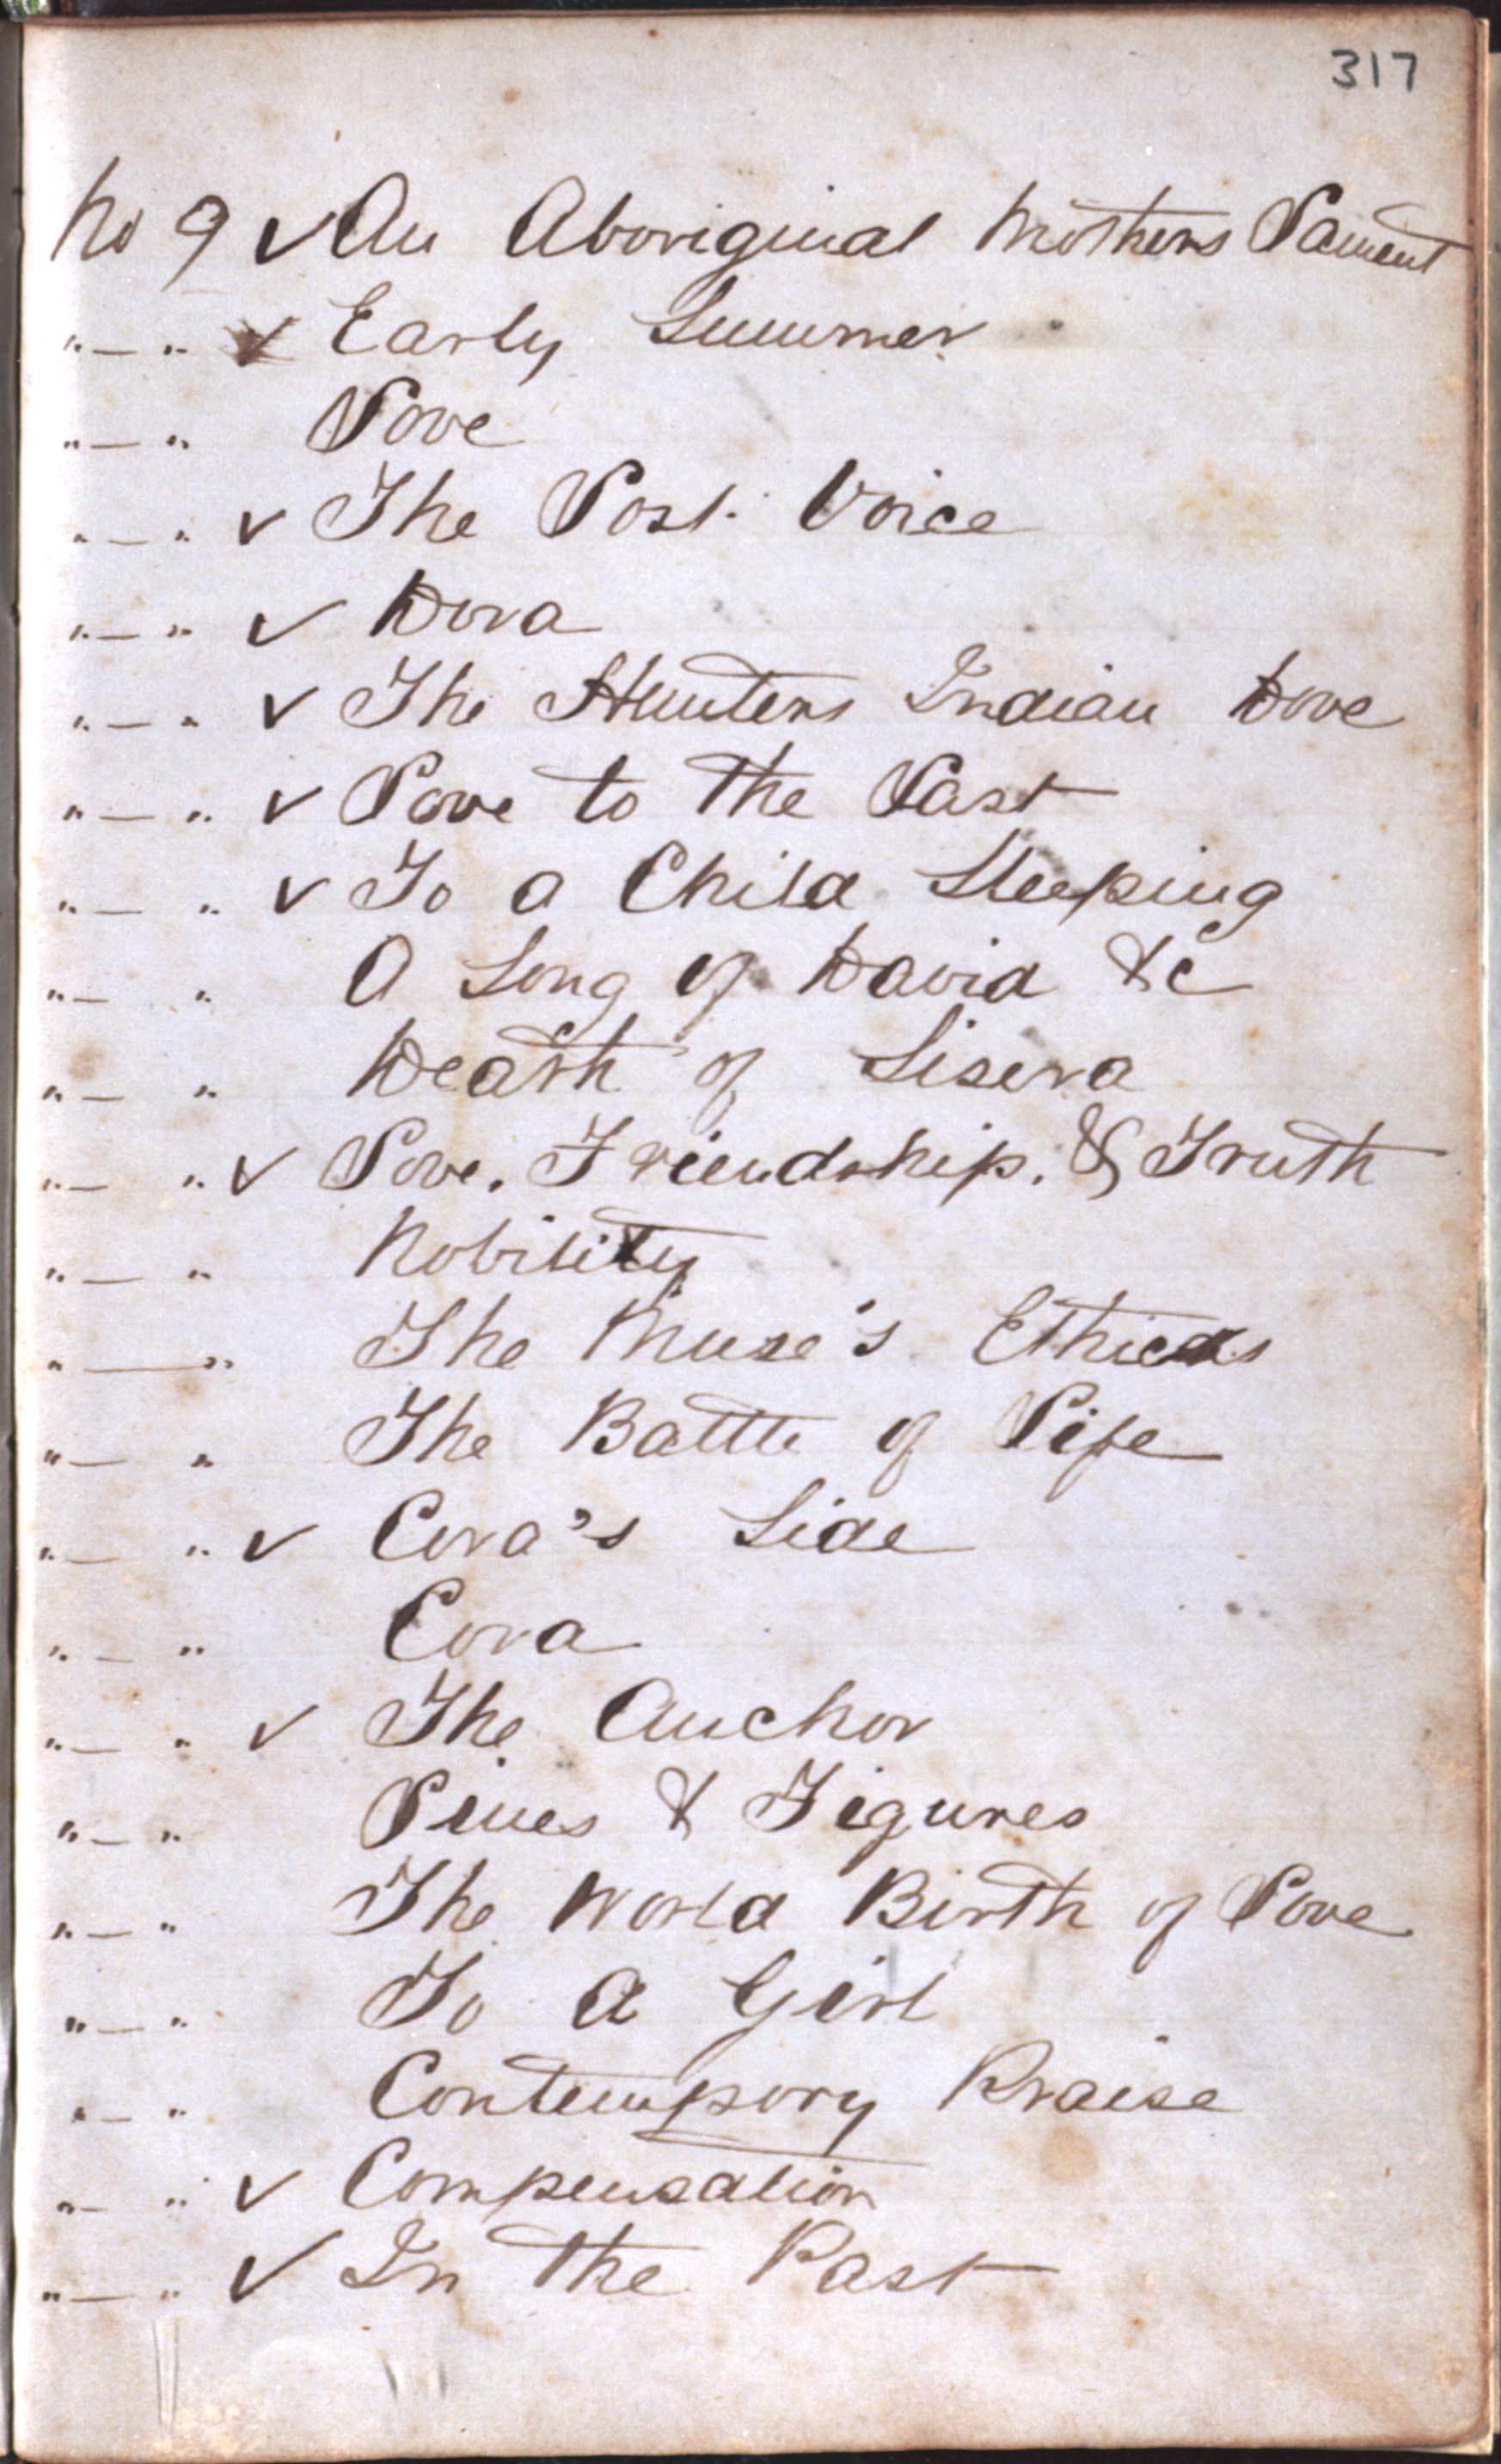 317
No 9 ✓ An Aboriginal Mothers Lament
" — " ✓ Early Summer
" — " Love
" — " ✓ The Lost Voice
" — " ✓ Dora
" — " ✓ The Hunters Indian Dove
" — " ✓ Love to the Last
" — " ✓ To a Child Sleeping
" — " A Song of David &c
" — " Death of Sisera
" — " ✓ Love, Friendship, & Truth
" — " Nobility
" — " The Muse's Ethics
" — " The Battle of Life
" — " ✓ Cora's Side
" — " Cora
" — " ✓ The Anchor
" — " Lines & Figures
" — " The World Birth of Love
" — " To a Girl
" — " Contempory Praise
" — " ✓ Compensation
" — " ✓ In the Past